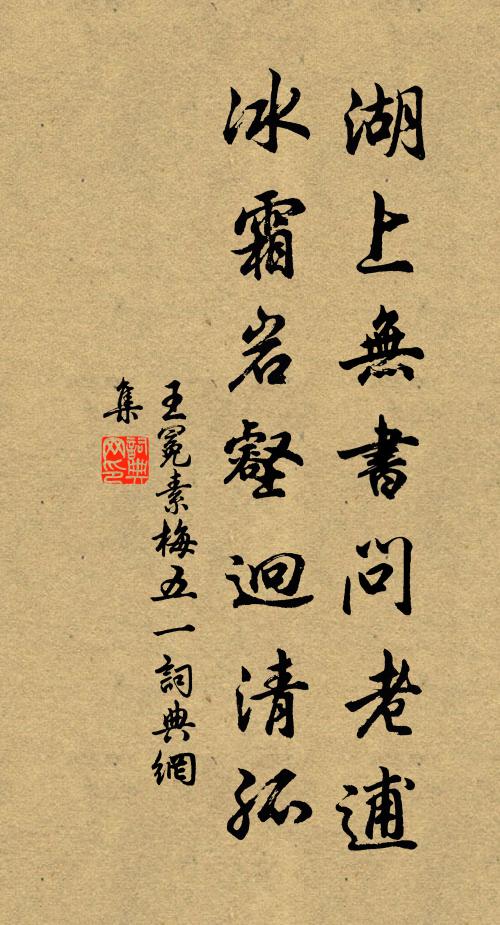 湖上無書問老逋
冰霜岩壑迥清孤
王冕素梅五一詞典網
集
詞典網印